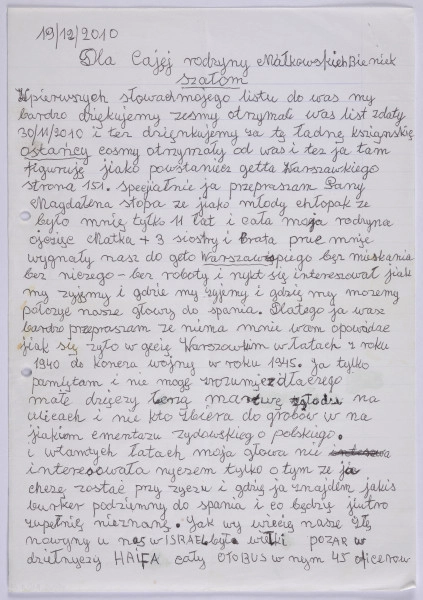 19/12/2010
Dla Cajej rodzyny Małkowskich Bieniek
szalom
W pierwszych słowach mojego listu do was my
bardzo dziękujemy zesmy otrzymale was list zdaty
30/11/2010 i tez dzięnkujemy za tę ładnę ksziąnskię
ostańcy cosmy otrzymały od was i tez ja tam
figuruję jiako powstaniesz getta Warszawskiego
strona 151. specjialnie ja przepraszam Pany
Magdalena stopa ze jiako młody chłopak ze
było mnię tylko 11 lat i cała moja rodzyna
ojczisc Matka + 3 siostry i Brata prue mnie
wygnały nasz do geto Warszawspiego bez mieskania
bez niczego - bez roboty i nykt się interesował jiak
my zyjęmy i gdzie my zyjemy i gdzię my możemy
połozyc nasze głowy do spania. Dlatego ja wasz
bardzo przeprasam ze nima mnie wam opowidze
jiak się zyło w gecię Warszawskim w łatach z roku
1940 do koncza wojny w roku 1945. ja tylko
pamiętam i nie mogę zrozumięz dlaczego
małe dzięczy lerzą martwę zgłodu na
ulicach i nie kto zbiera do grobów w na
jiakiem cmentarzu zydowskięg o polskiego.
i włamych łatach moja głowa nie
interesowała nyczem tylko o tym ze ja
chczę zostać przy zyczu i gdzię ja znajdem jakis
bunker podziumny do spania i co będzię jiutro
zupełnię nieznanę. Jak wy wiecię nasze złę
nowyny u nas w ISRAEL było wielki pozar w
dzielnyczy HAIFA cały OTOBUS w nym 45 oficerow